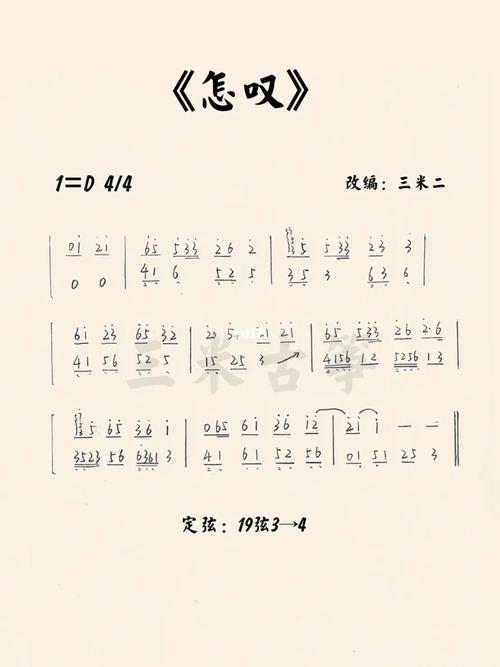 《怎叹》
1=D 4/4 改编：三米二
01 21 | 65 533 26 2 | 5 533 23 3 |
0 0 41 6 52 5 35 3 63 6
61 23 65 32 | 21 21 | 65 533 26 2·6 |
41 56 52 5 15 25 3 4156 12 5256 13
5 65 36 1 | 065 61 36 12 | 21 1 — — ||
3523 56 6361 3 41 61 52 56 01 51 25 3
三米古筝
定弦：19弦3→4